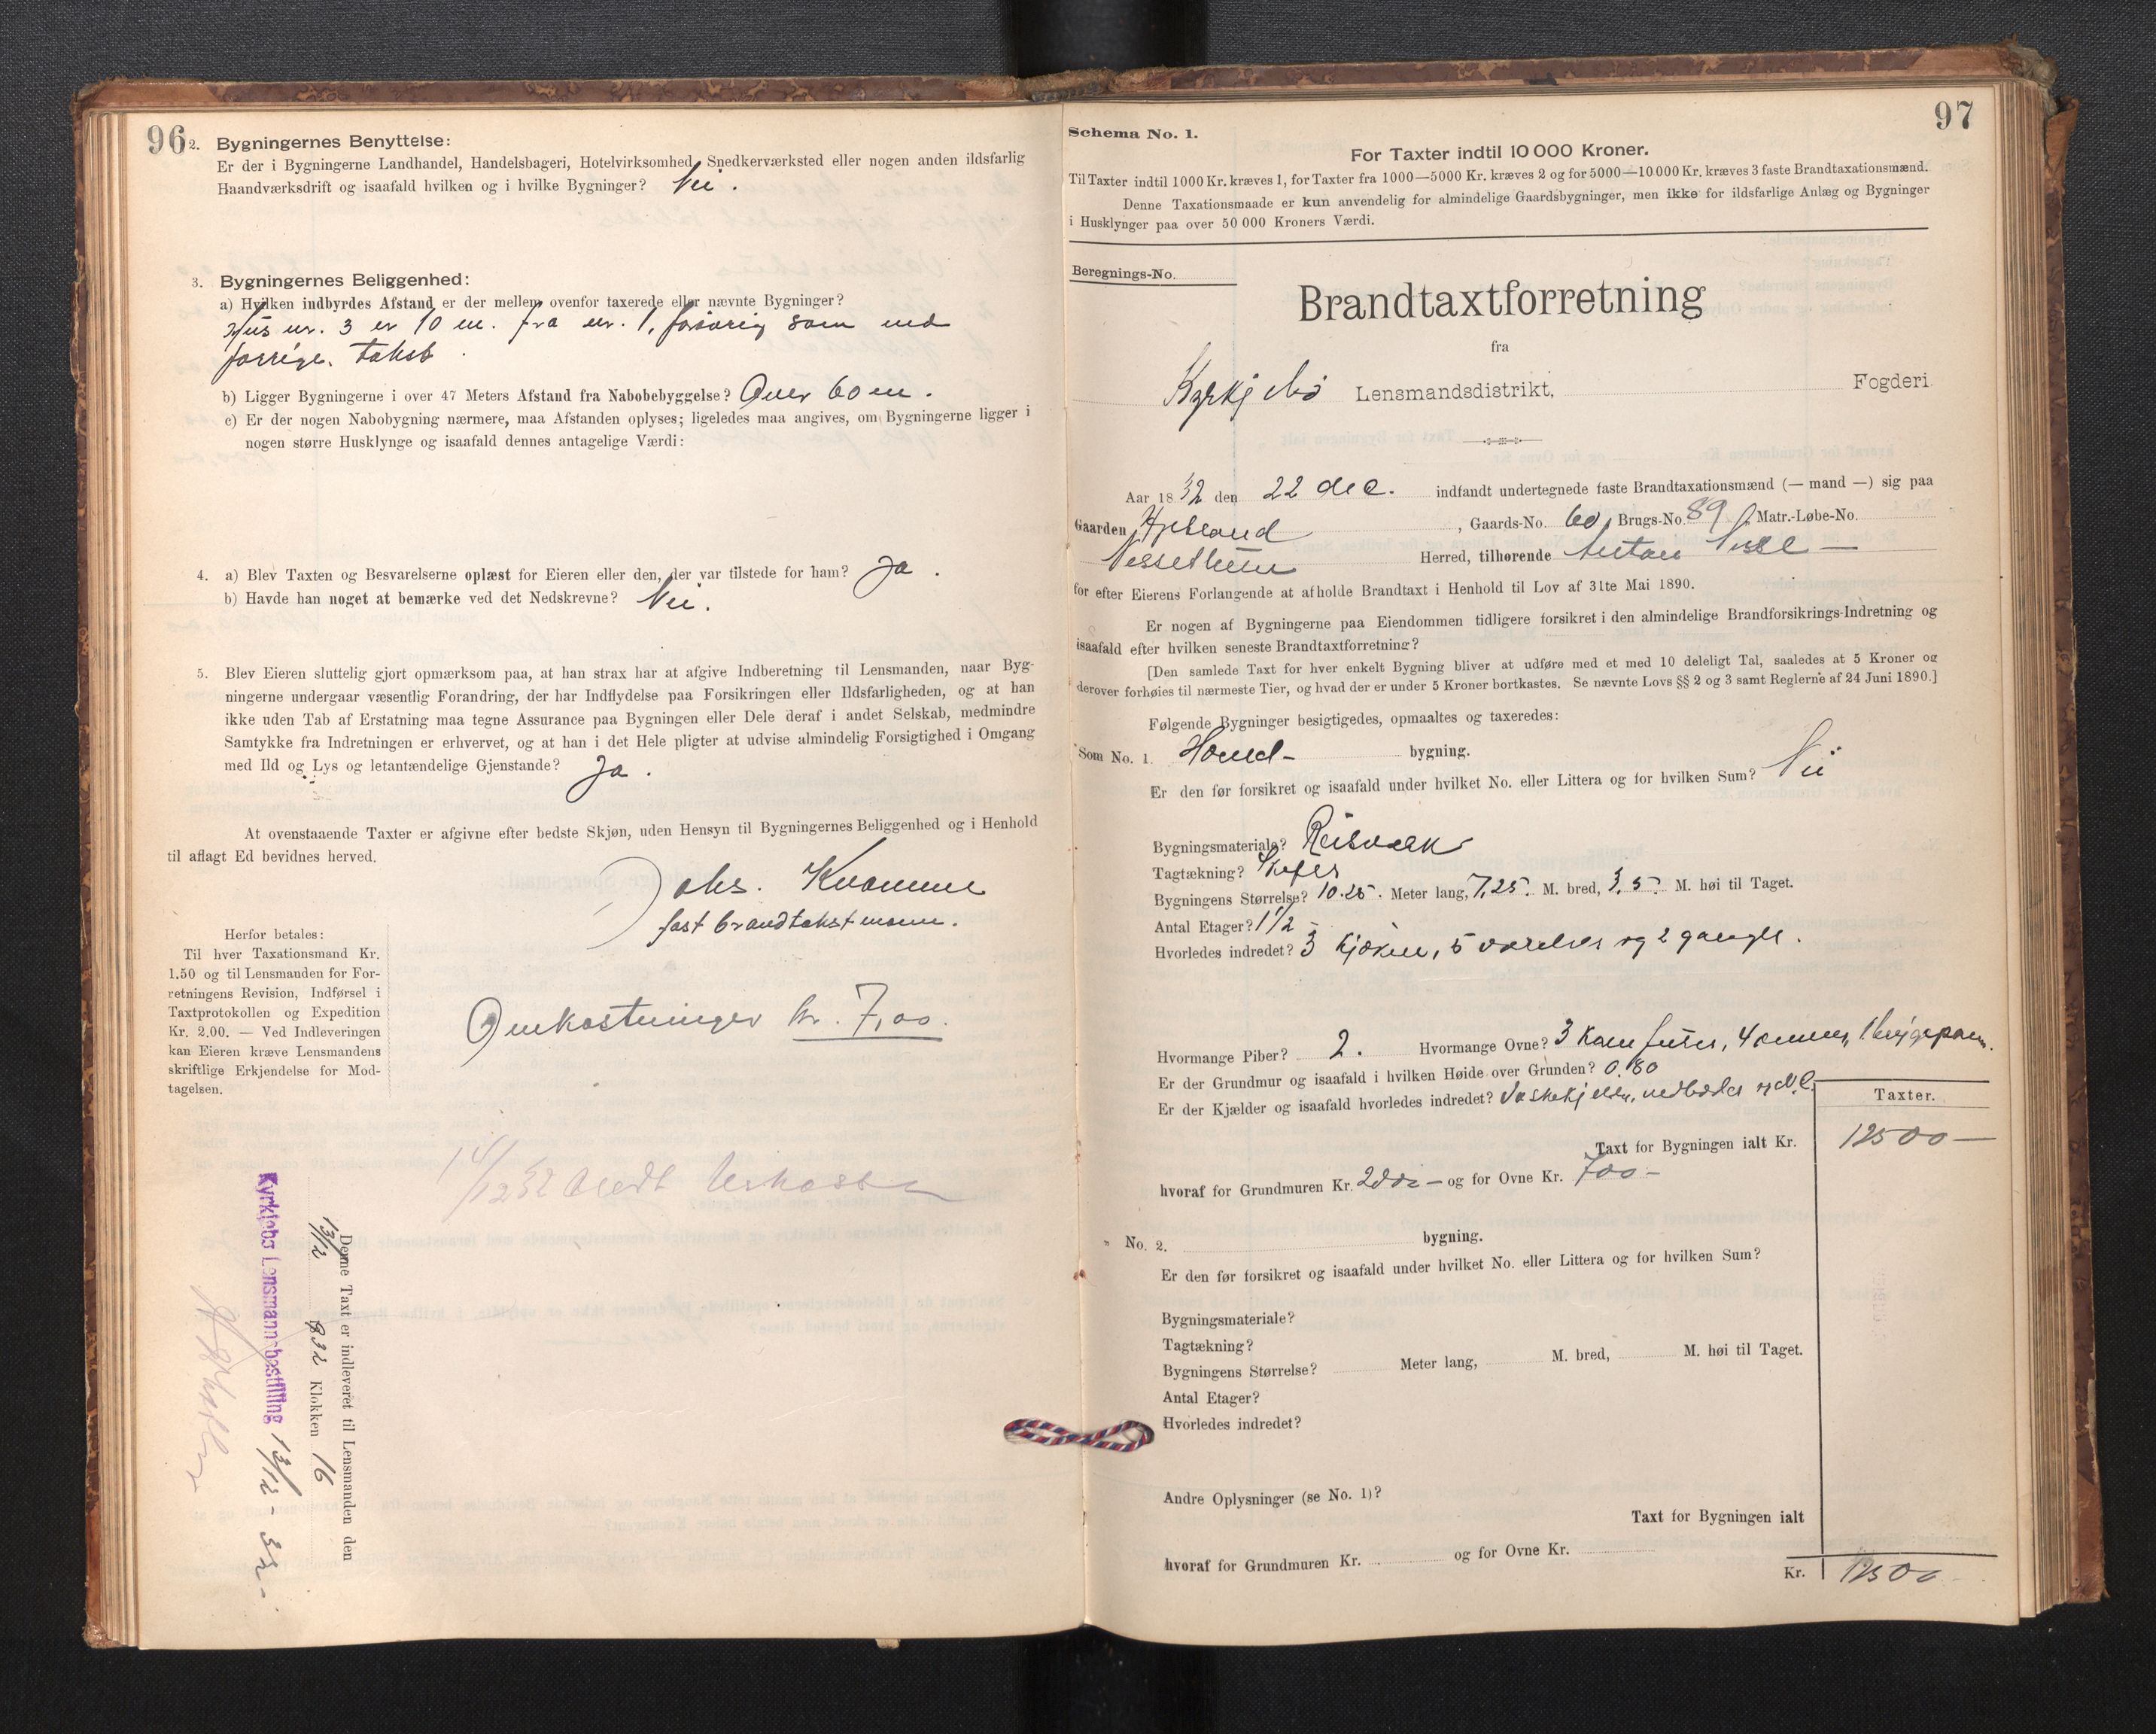 96
2. Bygningernes Benyttelse:
Er der i Bygningerne Landhandel, Handelsbageri, Hotelvirksomhed, Snedkerværksted eller nogen anden ildsfarlig
Haandværksdrift og isaafald hvilken og i hvilke Bygninger? Nei.
3. Bygningernes Beliggenhed:
a) Hvilken indbyrdes Afstand er der mellem ovenfor taxerede eller nævnte Bygninger?
Hus nr. 3 er 10 m. fra nr. 1, forøvrig som ved
forrige takst.
b) Ligger Bygningerne i over 47 Meters Afstand fra Nabobebyggelse? Over 60 m.
c) Er der nogen Nabobygning nærmere, maa Afstanden oplyses; ligeledes maa angives, om Bygningerne ligger i
nogen større Husklynge og isaafald dennes antagelige Værdi:
4. a) Blev Taxten og Besvarelserne oplæst for Eieren eller den, der var tilstede for ham? Ja.
b) Havde han noget at bemærke ved det Nedskrevne? Nei.
5. Blev Eieren sluttelig gjort opmærksom paa, at han strax har at afgive Indberetning til Lensmanden, naar Byg-
ningerne undergaar væsentlig Forandring, der har Indflydelse paa Forsikringen eller Ildsfarligheden, og at han
ikke uden Tab af Erstatning maa tegne Assurance paa Bygningen eller Dele deraf i andet Selskab, medmindre
Samtykke fra Indretningen er erhvervet, og at han i det Hele pligter at udvise almindelig Forsigtighed i Omgang
med Ild og Lys og letantændelige Gjenstande? Ja.
At ovenstaaende Taxter er afgivne efter bedste Skjøn, uden Hensyn til Bygningernes Beliggenhed og i Henhold
til aflagt Ed bevidnes herved.
Johs. Kvamme
fast brandtakstmann.
Herfor betales:
Til hver Taxationsmand Kr.
1.50 og til Lensmanden for For-
retningens Revision, Indførsel i
Taxtprotokollen og Expedition
Kr. 2.00. — Ved Indleveringen
kan Eieren kræve Lensmandens
skriftlige Erkjendelse for Mod-
tagelsen.
Omkostninger kr. 7,00.
14/12 32
Denne Taxt er indleveret til Lensmanden den
13/12 932 Klokken 16
Kyrkjebø Lensmannsbestilling 13/12 - 32 -
97
Schema No. 1.
For Taxter indtil 10 000 Kroner.
Til Taxter indtil 1000 Kr. kræves 1, for Taxter fra 1000—5000 Kr. kræves 2 og for 5000—10 000 Kr. kræves 3 faste Brandtaxationsmænd.
Denne Taxationsmaade er kun anvendelig for almindelige Gaardsbygninger, men ikke for ildsfarlige Anlæg og Bygninger
i Husklynger paa over 50 000 Kroners Værdi.
Beregnings-No.
Brandtaxtforretning
fra
Kyrkjebø Lensmandsdistrikt, Fogderi
Aar 1832 den 22 dec. indfandt undertegnede faste Brandtaxationsmænd (— mand —) sig paa
Gaarden , Gaards-No. 60, Brugs-No. 89, Matr.-Løbe-No.
Herred, tilhørende Anton Nesse —
for efter Eierens Forlangende at afholde Brandtaxt i Henhold til Lov af 31te Mai 1890.
Er nogen af Bygningerne paa Eiendommen tidligere forsikret i den almindelige Brandforsikrings-Indretning og
isaafald efter hvilken seneste Brandtaxtforretning?
[Den samlede Taxt for hver enkelt Bygning bliver at udføre med et med 10 deleligt Tal, saaledes at 5 Kroner og
derover forhøies til nærmeste Tier, og hvad der er under 5 Kroner bortkastes. Se nævnte Lovs §§ 2 og 3 samt Reglerne af 24 Juni 1890.]
Følgende Bygninger besigtigedes, opmaaltes og taxeredes:
Som No. 1. Hoved- bygning.
Er den før forsikret og isaafald under hvilket No. eller Littera og for hvilken Sum? Nei
Bygningsmateriale? Reisverk
Tagtækning? Skifer
Bygningens Størrelse? 10.25. Meter lang, 7,25. M. bred, 3,5. M. høi til Taget.
Antal Etager? 1 1/2
Hvorledes indredet? 3 kjøken, 5 værelser og 2 ganger.
Hvormange Piber? 2. Hvormange Ovne? 3 komfurer, 4 ovner, 1 bryggepan.
Er der Grundmur og isaafald i hvilken Høide over Grunden? 0.80
Er der Kjælder og isaafald hvorledes indredet? Vaskekjelder, vedboder og W.C.
Taxter.
Taxt for Bygningen ialt Kr. 12500 —
hvoraf for Grundmuren Kr. 2000 — og for Ovne Kr. 700 —
" No. 2. bygning.
Er den før forsikret og isaafald under hvilket No. eller Littera og for hvilken Sum?
Bygningsmateriale?
Tagtækning?
Bygningens Størrelse? Meter lang, M. bred, M. høi til Taget.
Antal Etager?
Hvorledes indredet?
Andre Oplysninger (se No. 1)?
Taxt for Bygningen ialt
hvoraf for Grundmuren Kr. og for Ovne Kr.
Kr. 12500